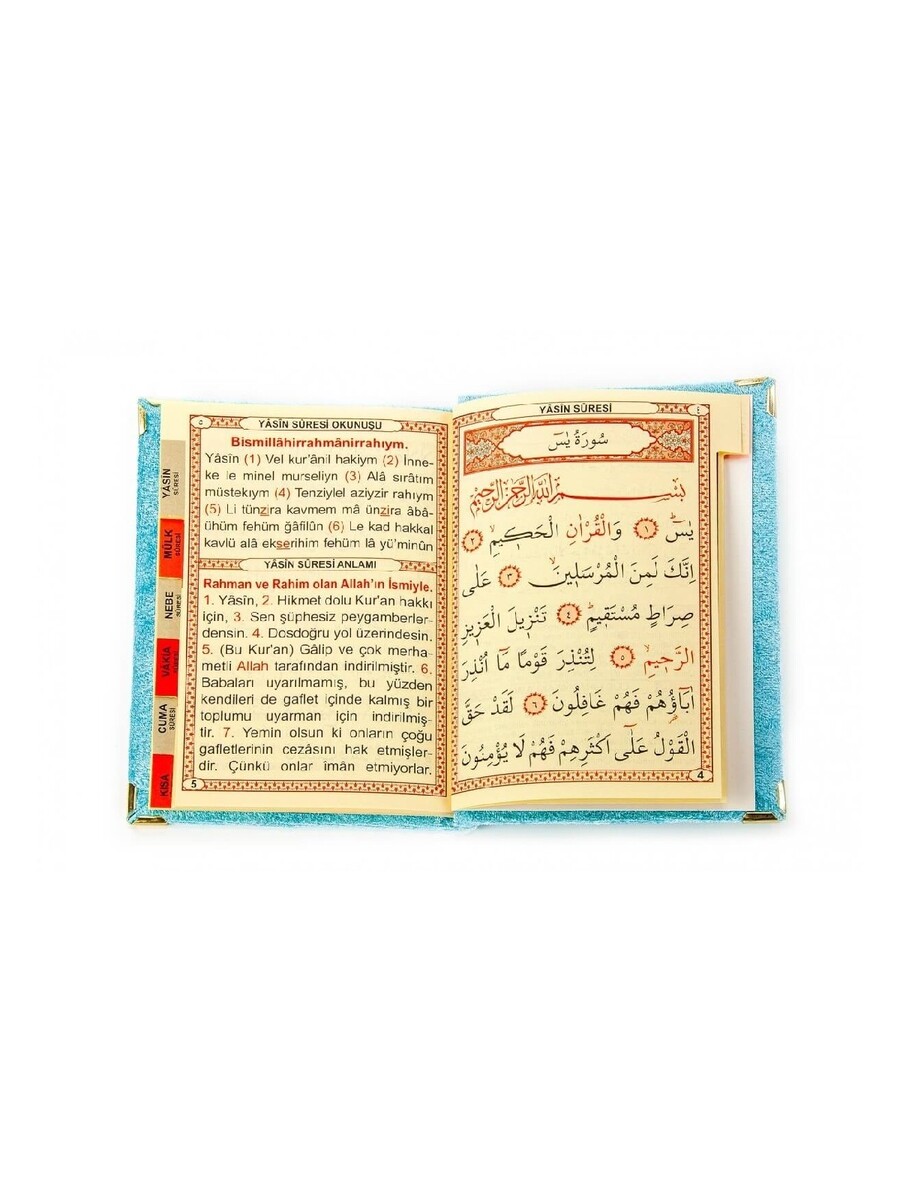 YÂSİN SÛRESİ
٤
سُورَةُ يٰسٓ
بِسْمِ اللّٰهِ الرَّحْمٰنِ الرَّحٖيمِ
يٰسٓ ﴿١﴾ وَالْقُرْاٰنِ الْحَكٖيمِ ﴿٢﴾
اِنَّكَ لَمِنَ الْمُرْسَلٖينَ ﴿٣﴾ عَلٰى
صِرَاطٍ مُسْتَقٖيمٍ ﴿٤﴾ تَنْزٖيلَ الْعَزٖيزِ
الرَّحٖيمِ ﴿٥﴾ لِتُنْذِرَ قَوْمًا مَٓا اُنْذِرَ
اٰبَٓاؤُهُمْ فَهُمْ غَافِلُونَ ﴿٦﴾ لَقَدْ حَقَّ
الْقَوْلُ عَلٰٓى اَكْثَرِهِمْ فَهُمْ لَا يُؤْمِنُونَ
4
٥
YÂSİN SÛRESİ OKUNUŞU
Bismillâhirrahmânirrahıym.
Yâsîn (1) Vel kur'ânil hakiym (2) İnne-
ke le minel murseliyn (3) Alâ sırâtım
müstekıym (4) Tenziylel aziyzir rahıym
(5) Li tünzira kavmem mâ ünzira âbâ-
ühüm fehüm ğâfilûn (6) Le kad hakkal
kavlü alâ ekserihim fehüm lâ yü'minûn
YÂSİN SÛRESİ ANLAMI
Rahman ve Rahim olan Allah'ın İsmiyle.
1. Yâsîn, 2. Hikmet dolu Kur'an hakkı
için, 3. Sen şüphesiz peygamberler-
densin. 4. Dosdoğru yol üzerindesin.
5. (Bu Kur'an) Gâlip ve çok merha-
metli Allah tarafından indirilmiştir. 6.
Babaları uyarılmamış, bu yüzden
kendileri de gaflet içinde kalmış bir
toplumu uyarman için indirilmiş-
tir. 7. Yemin olsun ki onların çoğu
gafletlerinin cezâsını hak etmişler-
dir. Çünkü onlar îmân etmiyorlar.
5
YÂSİN
SÛRESİ
MÜLK
SÛRESİ
NEBE
SÛRESİ
VÂKIA
SÛRESİ
CUMA
SÛRESİ
KISA